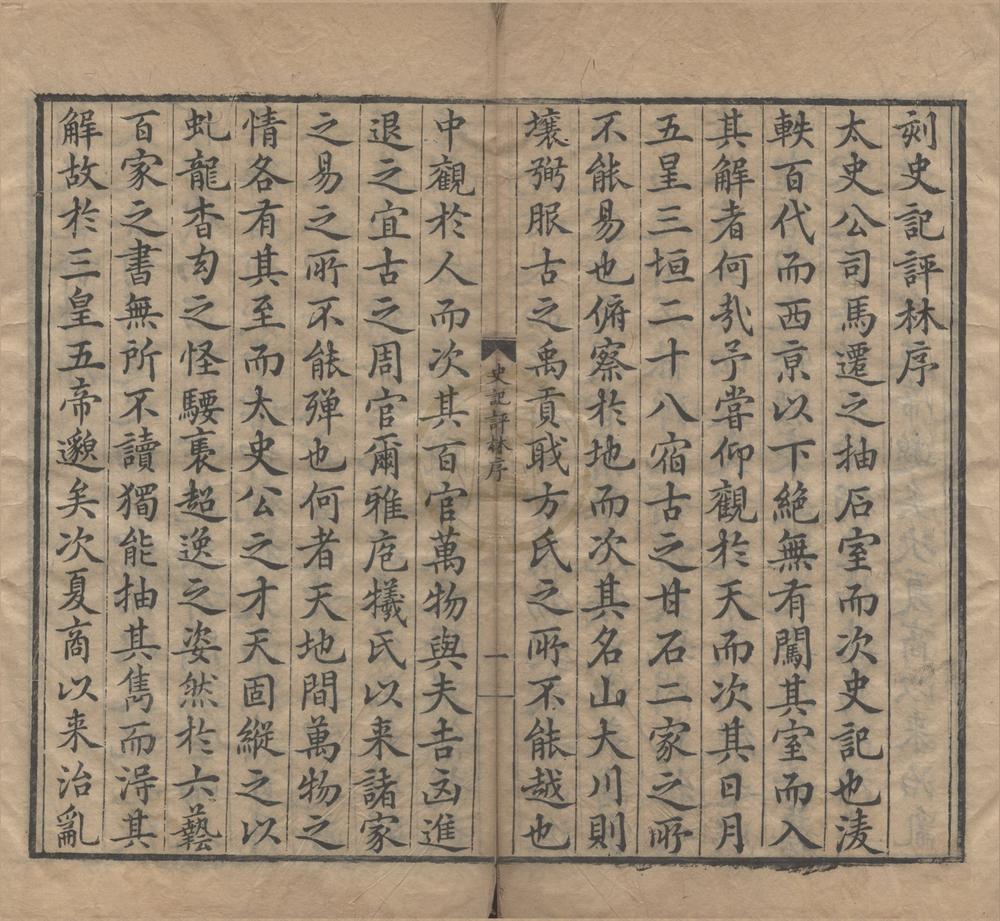 刻史記評林序
太史公司馬遷之抽石室而次史記也淩
軼百代而西京以下絕無有闖其室而入
其解者何㢤予嘗仰觀於天而次其日月
五星三垣二十八宿古之甘石二家之所
不能易也俯察於地而次其名山大川則
壤弼服古之禹貢職方氏之所不能越也
史記評林序
一
中觀於人而次其百官萬物與夫吉凶進
退之宜古之周官爾雅庖犧氏以来諸家
之易之所不能殫也何者天地間萬物之
情各有其至而太史公之才天固縱之以
虬龍杳幻之怪騕褭超逸之姿然於六藝
百家之書無所不讀獨能抽其雋而淂其
解故於三皇五帝邈矣次夏商以来治亂